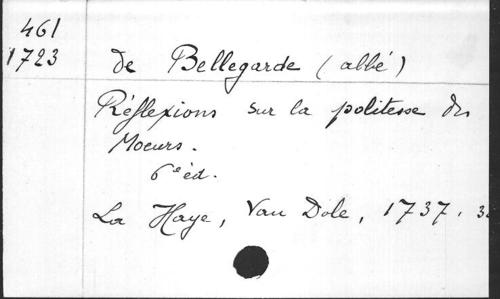 461
1723
de Bellegarde (abbé)
Réflexions sur la politesse des
Moeurs.
6e éd.
La Haye, Van Dole, 1737.